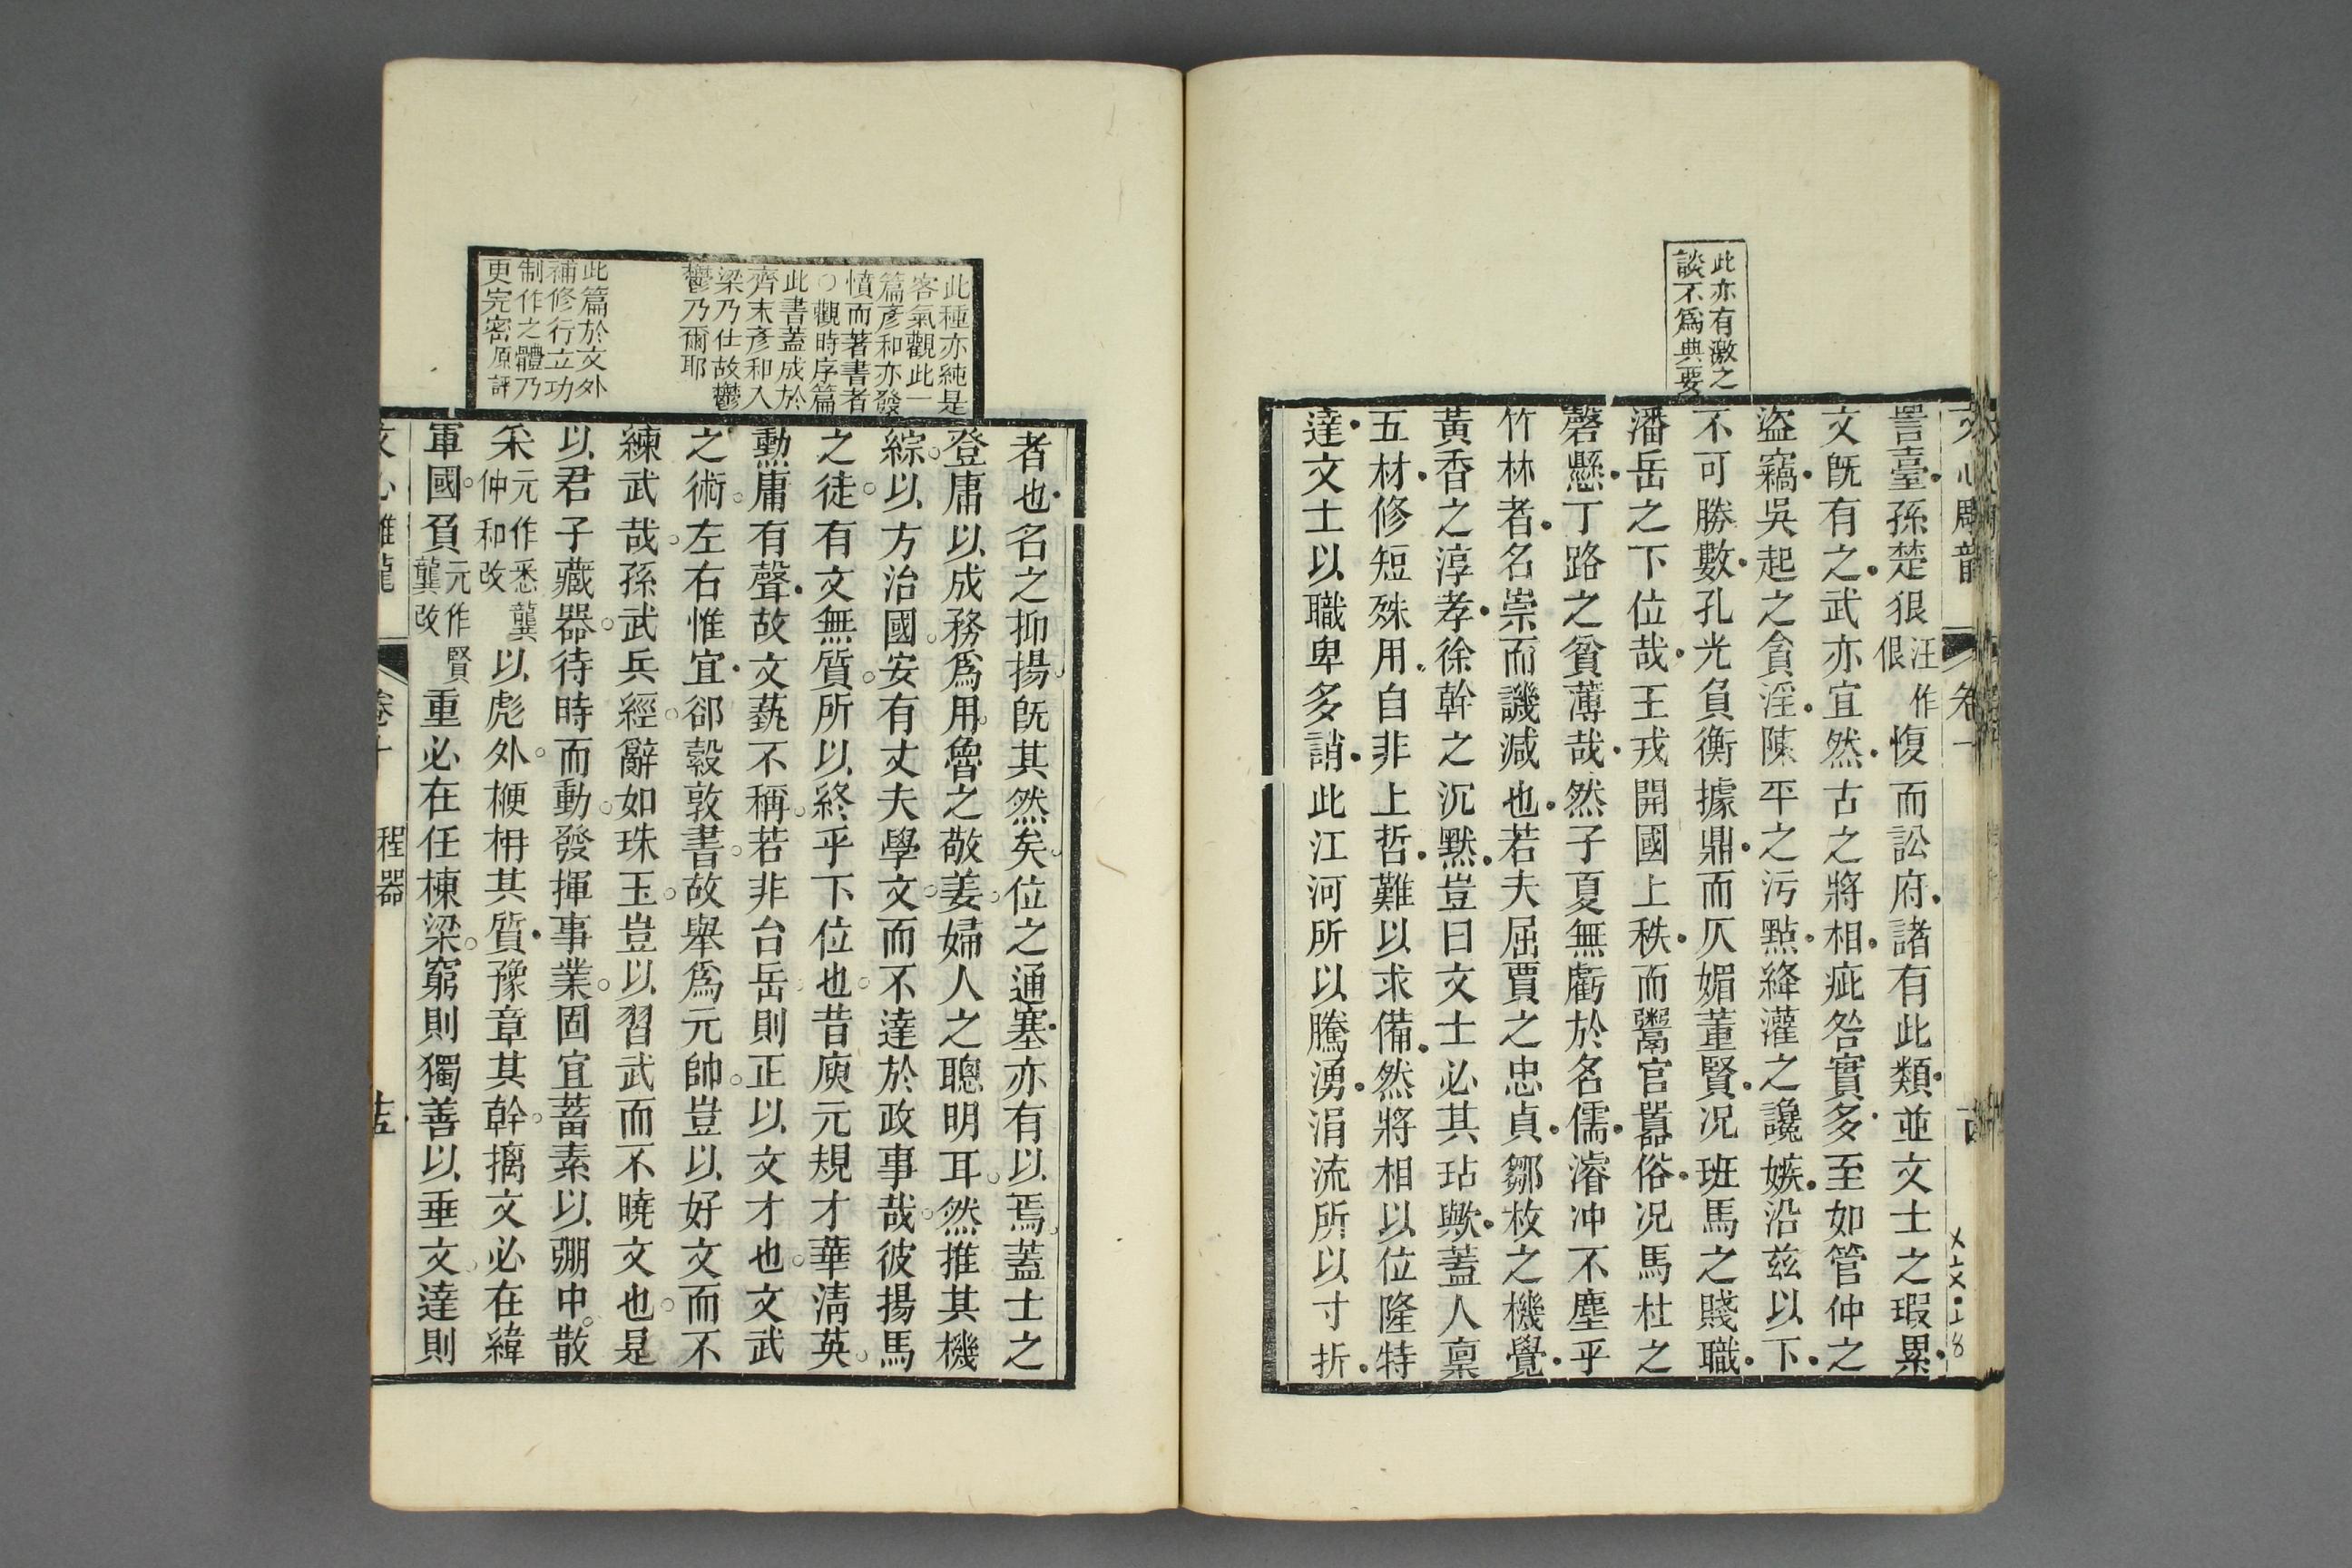 此亦有激之
談不爲典要
詈臺孫楚狠汪作佷愎而訟府諸有此類並文士之瑕累
文旣有之武亦宜然古之將相疵咎實多至如管仲之
盜竊吳起之貪淫陳平之污點絳灌之讒嫉沿兹以下
不可勝數孔光負衡據鼎而仄媚董賢况班馬之賤職
潘岳之下位哉王戎開國上秩而鬻官囂俗况馬杜之
磬懸丁路之貧薄哉然子夏無虧於名儒濬冲不塵乎
竹林者名崇而譏減也若夫屈賈之忠貞鄒枚之機覺
黃香之淳孝徐幹之沉默豈曰文士必其玷歟蓋人稟
五材修短殊用自非上哲難以求備然將相以位隆特
達文士以職卑多誚此江河所以騰湧涓流所以寸折
此種亦純是
客氣觀此一
篇彥和亦發
憤而著書者
○觀時序篇
此書蓋成於
齊末彥和入
梁乃仕故鬱
鬱乃爾耶
此篇於文外
補修行立功
制作之體乃
更完密原評
者也名之抑揚旣其然矣位之通塞亦有以焉蓋士之
登庸以成務爲用魯之敬姜婦人之聰明耳然推其機
綜以方治國安有丈夫學文而不達於政事哉彼揚馬
之徒有文無質所以終乎下位也昔庾元規才華淸英
勳庸有聲故文藝不稱若非台岳則正以文才也文武
之術左右惟宜郤縠敦書故舉爲元帥豈以好文而不
練武哉孫武兵經辭如珠玉豈以習武而不曉文也是
以君子藏器待時而動發揮事業固宜蓄素以弸中散
采元作悉龔仲和改以彪外楩柟其質豫章其幹摛文必在緯
軍國負元作賢龔改重必在任棟梁窮則獨善以垂文達則
文心雕龍 卷十 程器 十五